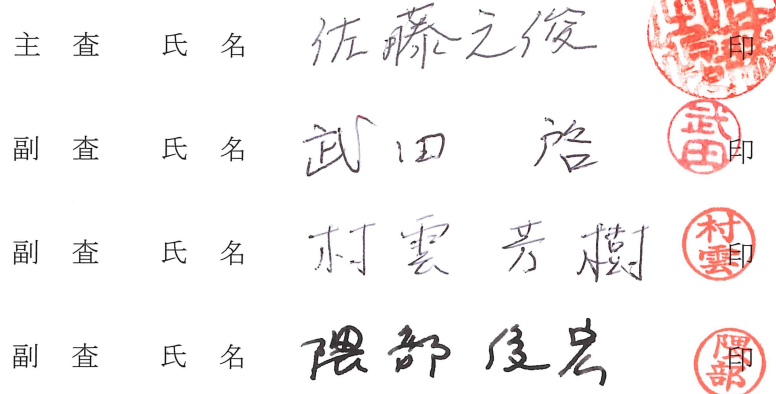 主 査 氏 名 佐藤之俊 印
副 査 氏 名 武田 啓 武田 印
副 査 氏 名 村雲 芳樹 村雲 印
副 査 氏 名 隈部 俊宏 隈部 印